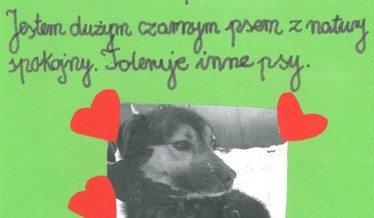 Jestem dużym czarnym psem z natury
spokojny. Toleruje inne psy.